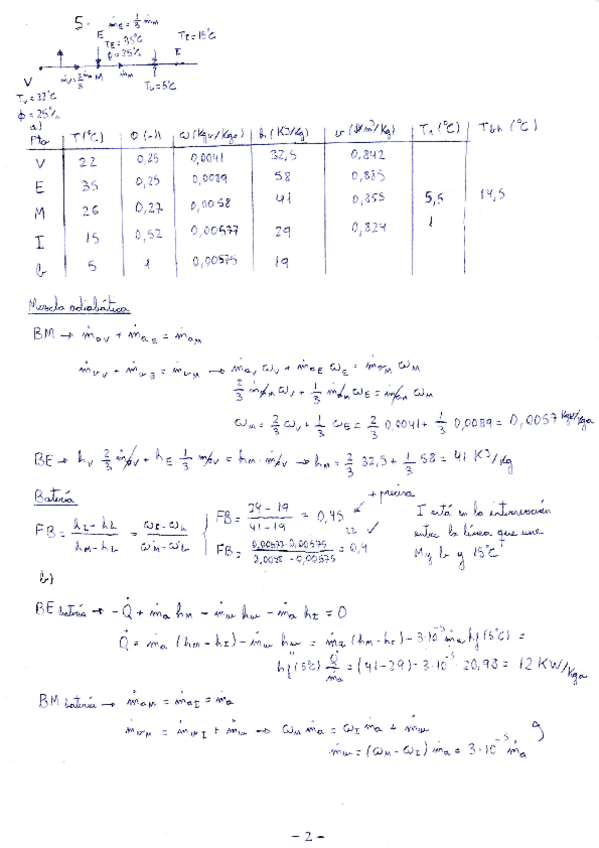 5.- ṁE = 1/3 ṁM
E TE = 35ºC TI = 15ºC
φ = 25%
V ṁV = 2/3 ṁM M ṁM E
TV = 22ºC Tb = 5ºC
φ = 25%
a)
Pto T(ºC) Ø (-) ω (Kgv/Kga) h (KJ/Kg) v (m³/Kg) Tr (ºC) Tbh (ºC)
V 22 0,25 0,0041 32,5 0,842
E 35 0,25 0,0089 58 0,885
M 26 0,27 0,0058 41 0,855 5,5 14,5
I 15 0,52 0,00577 29 0,824 1
b 5 1 0,00575 19
Mezcla adiabática
BM → ṁaV + ṁaE = ṁaM
ṁvV + ṁvE = ṁvM → ṁaV ωV + ṁaE ωE = ṁaM ωM
2/3 ṁaM ωV + 1/3 ṁaM ωE = ṁaM ωM
ωM = 2/3 ωV + 1/3 ωE = 2/3 0,0041 + 1/3 0,0089 = 0,0057 Kgv/Kga
BE → hV 2/3 ṁav + hE 1/3 ṁav = hM · ṁav → hM = 2/3 32,5 + 1/3 58 = 41 KJ/Kg
Batería
+ precisa
FB = (hI - hb)/(hM - hb) = (ωI - ωb)/(ωM - ωb) { FB = (29 - 19)/(41 - 19) = 0,45
22
FB = (0,00577 - 0,00575)/(0,0058 - 0,00575) = 0,4
I está en la intersección
entre la línea que une
M y b y 15ºC
b)
BE batería → -Q̇ + ṁa hM - ṁw hw - ṁa hI = 0
Q̇ = ṁa (hM - hI) - ṁw hw = ṁa (hM - hI) - 3·10⁻⁵ ṁa hf (5ºC) =
hf (5ºC) Q̇/ṁa = (41 - 29) - 3·10⁻⁵ · 20,98 = 12 KW/Kga
BM batería → ṁaM = ṁaI = ṁa
ṁvM = ṁvI + ṁw → ωM ṁa = ωI ṁa + ṁw
ṁw = (ωM - ωI) ṁa = 3·10⁻⁵ ṁa
- 2 -